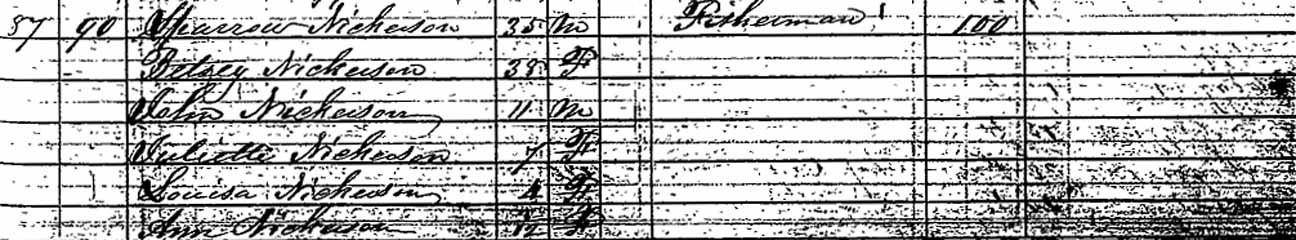 87 90 Sparrow Nickerson 35 M Fisherman 100
Betsey Nickerson 38 F
John Nickerson 11 M
Juliette Nickerson 7 F
Louisa Nickerson 4 F
Ann Nickerson F